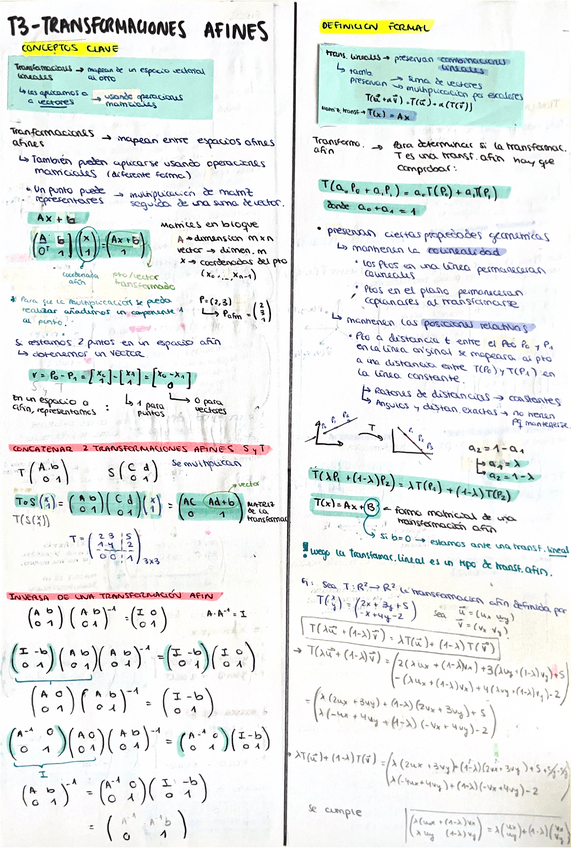 T3-TRANSFORMACIONES AFINES
CONCEPTOS CLAVE
Transformaciones lineales → mapean de un espacio vectorial al otro
↳ las aplicamos a a vectores → usando operaciones matriciales
Tranformaciones afines → mapean entre espacios afines
↳ También pueden aplicarse usando operaciones
matriciales (diferente forma)
• Un punto puede representarse → multiplicación de matriz
seguida de una suma de vector.
Ax + b
(A b / 0ᵀ 1)(x / 1) = (Ax+b / 1)
coordenada afín
pto/vector transformado
Matrices en bloque
A → dimension m×n
vector → dimen. m
x → coordenadas del pto
(x₀, ... xₙ₋₁)
* Para que la multiplicación se pueda
realizar añadimos un componente 1
al punto.
P = (2,3)
↳ Pafin = (2 / 3 / 1)
Si restamos 2 puntos en un espacio afín
↳ obtenemos un VECTOR.
v = P₀ - P₁ = [x₀ / 1] - [x₁ / 1] = [x₀ - x₁ / 0]
En un espacio afín, representamos :
↳ 1 para puntos
↳ 0 para vectores
CONCATENAR 2 TRANSFORMACIONES AFINES S y T
T (A b / 0 1) S (C d / 0 1) Se multiplican
vector
T∘S(x / 1) = (A b / 0 1)(C d / 0 1)(x / 1) = (AC Ad+b / 0 1) MATRIZ de la transformac
T(S(x))
T = (2 3 5 / 1 -1 2 / 0 0 1) 3x3
INVERSA DE UNA TRANSFORMACIÓN AFIN
(A b / 0 1)(A b / 0 1)⁻¹ = (I 0 / 0 1) A·A⁻¹ = I
(I -b / 0 1)(A b / 0 1)(A b / 0 1)⁻¹ = (I -b / 0 1)(I 0 / 0 1)
(A 0 / 0 1)(A b / 0 1)⁻¹ = (I -b / 0 1)
(A⁻¹ 0 / 0 1)(A 0 / 0 1)(A b / 0 1)⁻¹ = (A⁻¹ 0 / 0 1)(I -b / 0 1)
I
(A b / 0 1)⁻¹ = (A⁻¹ 0 / 0 1)(I -b / 0 1)
= (A⁻¹ -A⁻¹b / 0 1)
DEFINICION FORMAL
trans. lineales → preservan combinaciones lineales
↳ tambn. preservan → suma de vectores
→ multiplicación por escalares
matriz. transf → T(x) = Ax
Transformo. afin → Para determinar si la transformac.
T es una transf. afín hay que
comprobar:
T(a₀P₀ + a₁P₁) = a₀T(P₀) + a₁T(P₁)
donde a₀ + a₁ = 1
• preservan ciertas propiedades geométricas
↳ mantienen la colinealidad
• los Ptos en una línea permanecen
colineales
• Ptos en el plano permanecen
coplanares al transformarse
↳ mantienen las posiciones relativas
• Pto a distancia t entre el Pto P₀ y P₁
en la línea original se mapeara al pto
a una distancia entre T(P₀) y T(P₁) en
la línea constante.
↳ Ratores de distancias → constantes
↳ Angulos y distan. exactas → no tienen pq mantenerse.
T
a₂ = 1 - a₁
↳ a₁ = λ
↳ a₂ = 1 - λ
T(λP₁ + (1-λ)P₂) = λT(P₁) + (1-λ)T(P₂)
T(x) = Ax + B → forma matricial de una
transformación afín
↳ si b=0 → estamos ante una transf. lineal
! luego la transformac. lineal es un tipo de transf. afín.
Ej: Sea T: R² → R² la transformación afín definida por
T(x / y) = (2x + 3y + 5 / -x + 4y - 2) sea ū = (ux uy)
v̄ = (vx vy)
T(λū + (1-λ)v̄) = λT(ū) + (1-λ)T(v̄)
→ T(λū + (1-λ)v̄) = (2(λux + (1-λ)vx) + 3(λuy + (1-λ)vy) + 5 / -(λux + (1-λ)vx) + 4(λuy + (1-λ)vy) - 2)
= (λ(2ux + 3uy) + (1-λ)(2vx + 3vy) + 5 / λ(-ux + 4uy) + (1-λ)(-vx + 4vy) - 2)
→ λT(ū) + (1-λ)T(v̄) = (λ(2ux + 3uy) + (1-λ)(2vx + 3vy) + 5 / λ(-ux + 4uy) + (1-λ)(-vx + 4vy) - 2)
se cumple
(λux + (1-λ)vx / λuy (1-λ)vy) = λ(ux / uy) + (1-λ)(vx / vy)